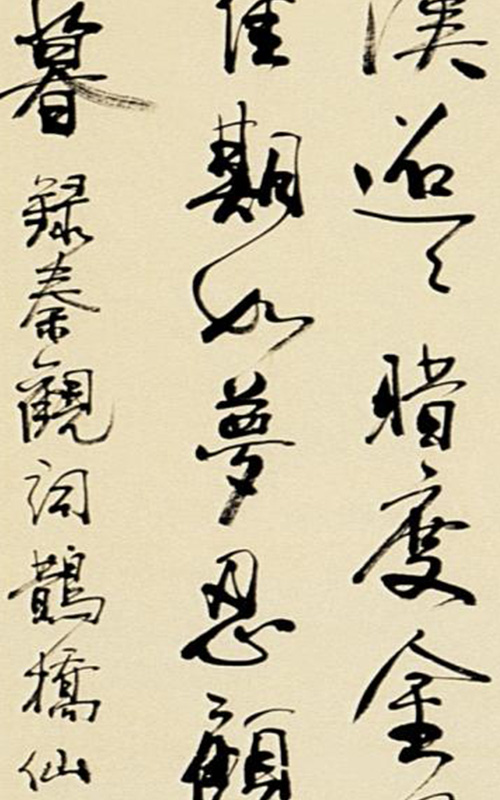 漢迢々暗度金
佳期如夢忍顧
暮 録秦觀詞鵲橋仙